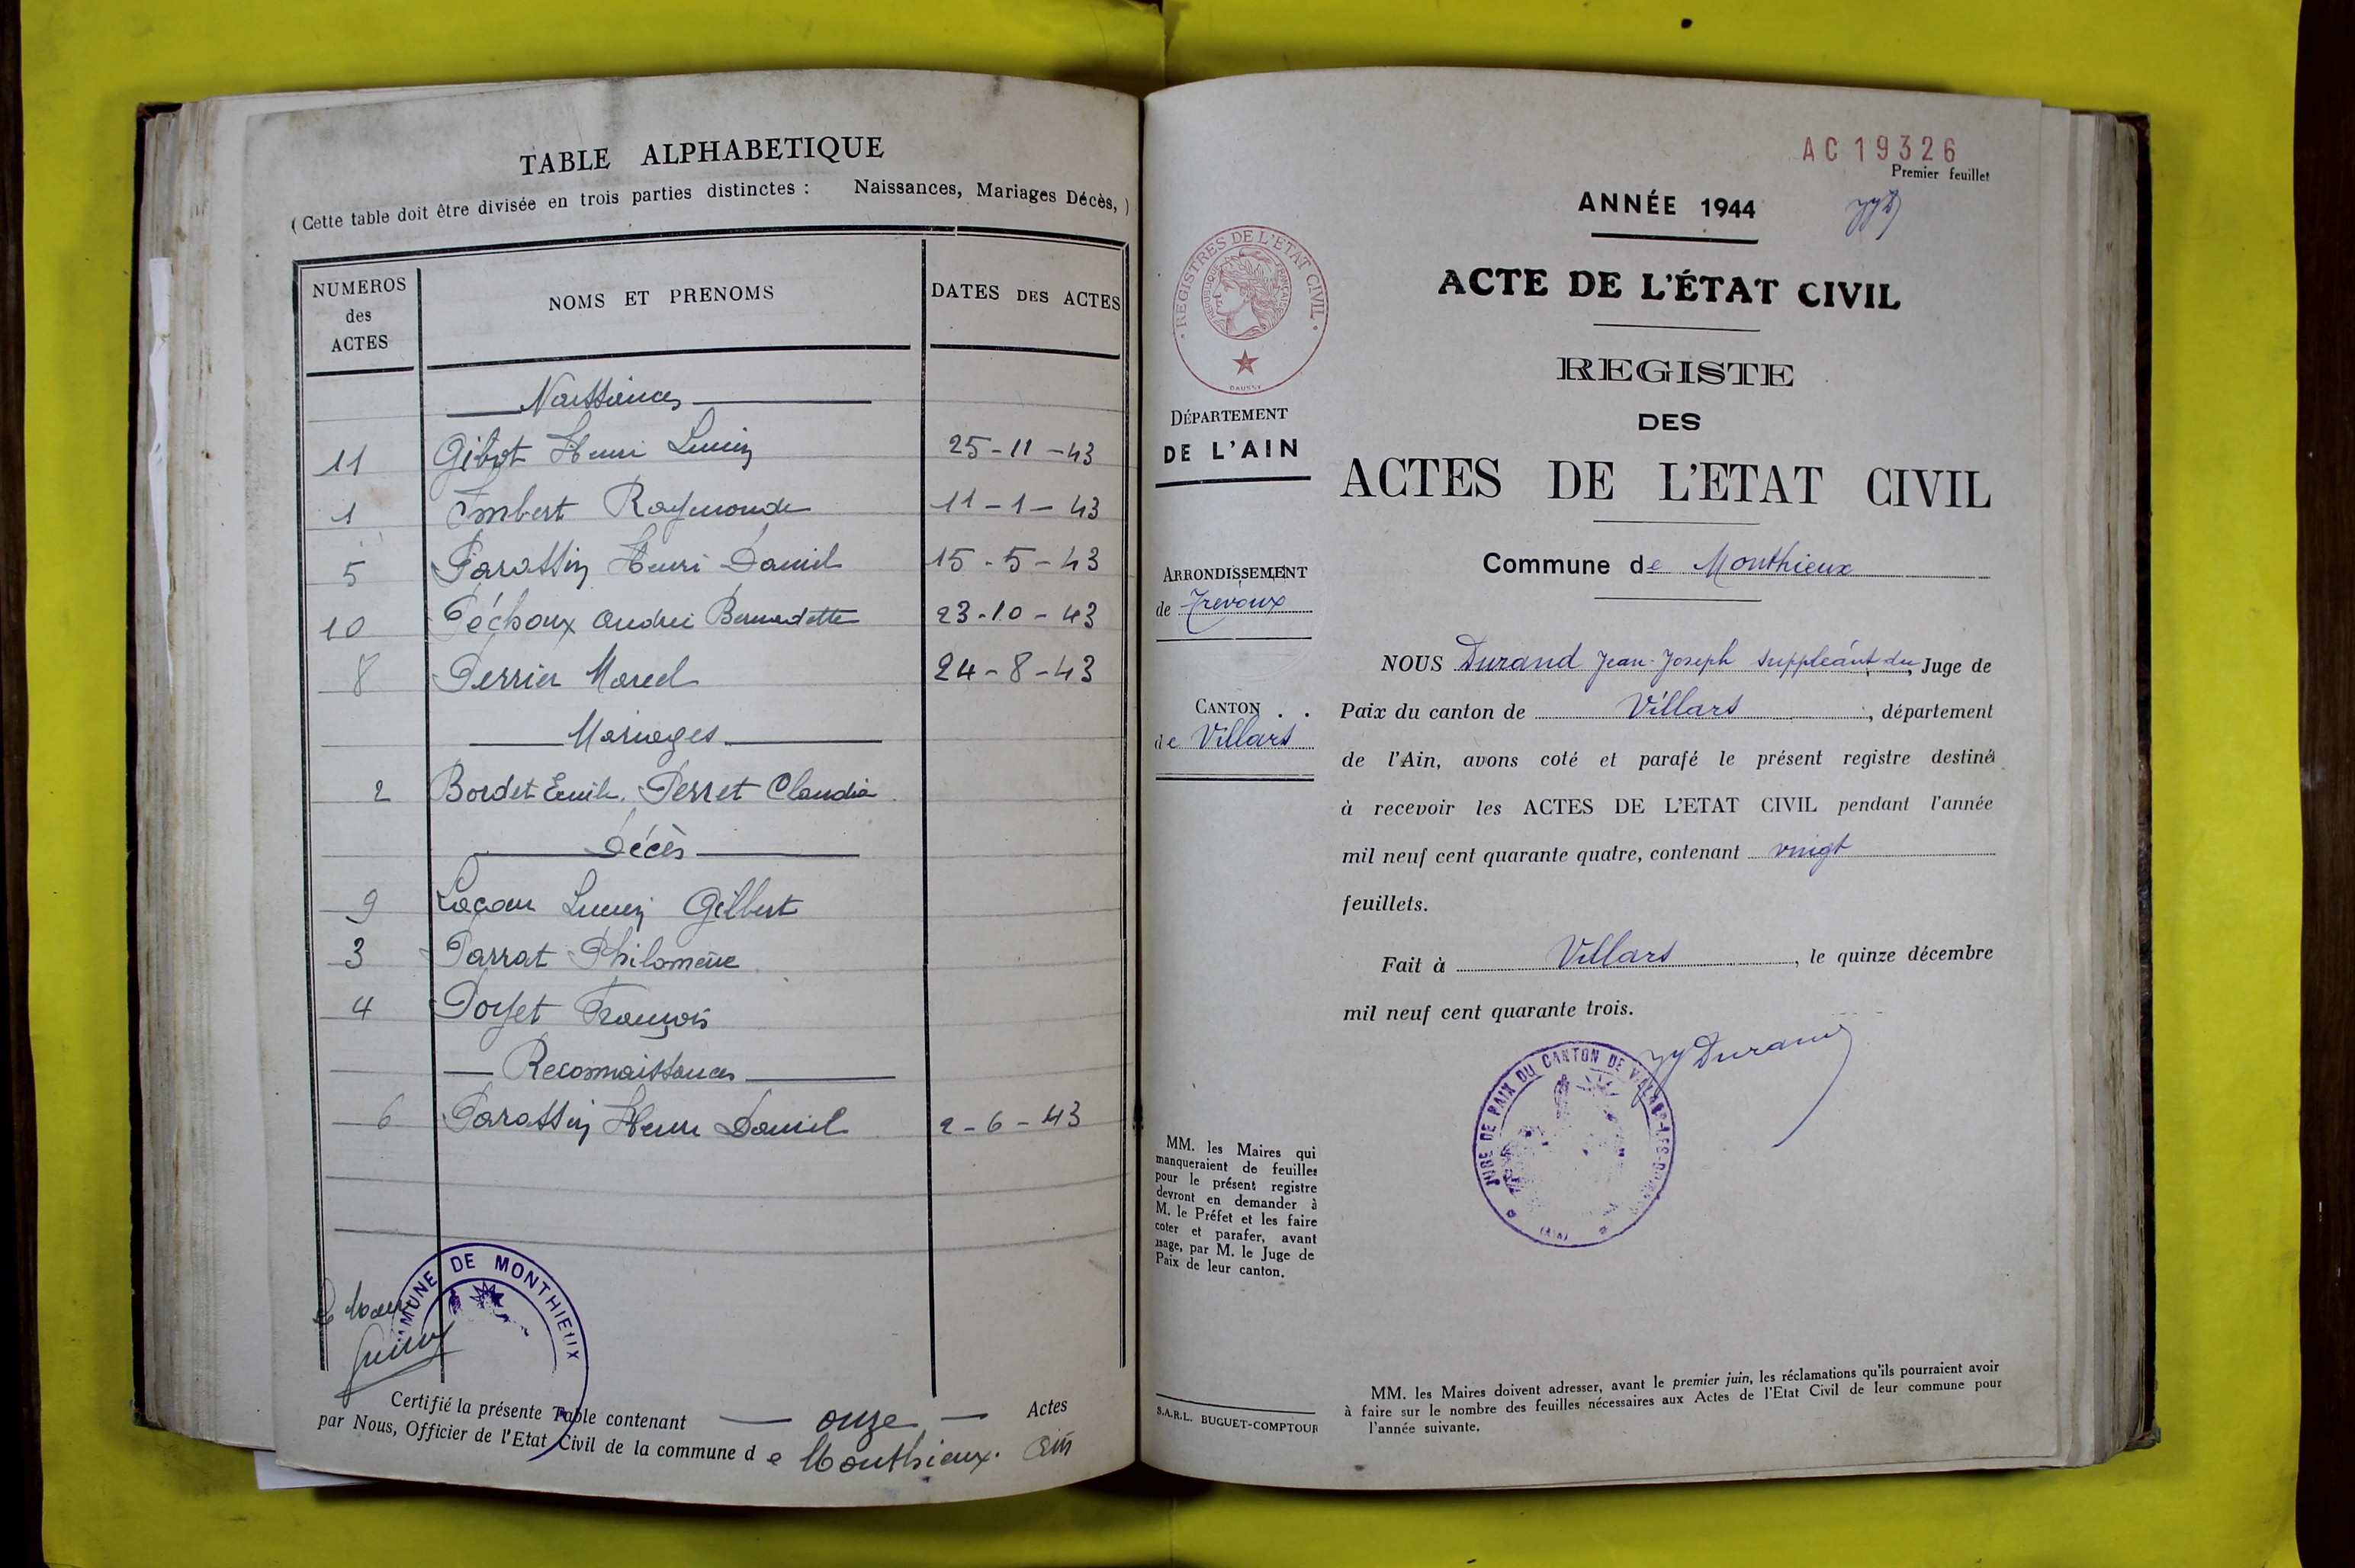 TABLE ALPHABETIQUE
( Cette table doit être divisée en trois parties distinctes : Naissances, Mariages Décès, )
NUMEROS des ACTES
NOMS ET PRENOMS
DATES DES ACTES
Naissances
11 Gibot Henri Lucien 25-11-43
1 Imbert Raymonde 11-1-43
5 Parassin Henri Daniel 15-5-43
10 Péchoux Bernadette 23-10-43
8 Perrier Marcel 24-8-43
Mariages
2 Bordet Emile. Perret Claudia
Décès
9 Lucien Gilbert
3 Parrat Philomène
4 Poyet François
Reconnaissances
6 Parassin Henri Daniel 2-6-43
COMMUNE DE MONTHIEUX
Le Maire
Certifié la présente Table contenant onze Actes
par Nous, Officier de l'Etat Civil de la commune d e Monthieux. Ain
AC 19326
Premier feuillet
ANNÉE 1944
REGISTRES DE L'ETAT CIVIL
REPUBLIQUE FRANÇAISE
ACTE DE L'ÉTAT CIVIL
REGISTE
DES
ACTES DE L'ETAT CIVIL
Commune de Monthieux
DÉPARTEMENT
DE L'AIN
ARRONDISSEMENT
de Trevoux
CANTON
de Villars
NOUS Durand Jean-Joseph suppléant du Juge de
Paix du canton de Villars, département
de l'Ain, avons coté et parafé le présent registre destiné
à recevoir les ACTES DE L'ETAT CIVIL pendant l'année
mil neuf cent quarante quatre, contenant vingt
feuillets.
Fait à Villars, le quinze décembre
mil neuf cent quarante trois.
JJ Durand
JUGE DE PAIX DU CANTON DE VILLARS-LES-DOMBES
(AIN)
MM. les Maires qui
manqueraient de feuilles
pour le présent registre
devront en demander à
M. le Préfet et les faire
coter et parafer, avant
usage, par M. le Juge de
Paix de leur canton.
S.A.R.L. BUGUET-COMPTOUR
MM. les Maires doivent adresser, avant le premier juin, les réclamations qu'ils pourraient avoir
à faire sur le nombre des feuilles nécessaires aux Actes de l'Etat Civil de leur commune pour
l'année suivante.